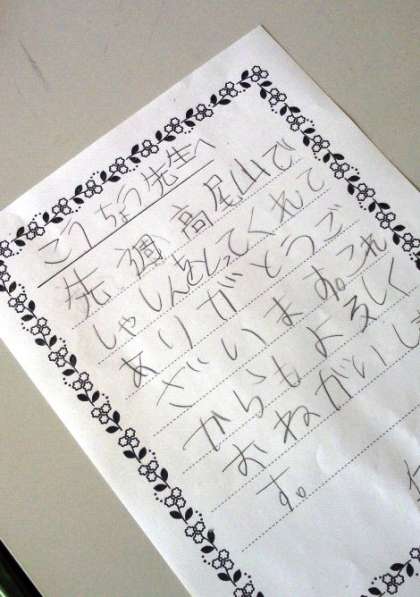 こうちょう先生へ
先週高尾山で
しゃしんをとってくれて
ありがとうご
ざいます。これ
からもよろしく
おねがいしま
す。